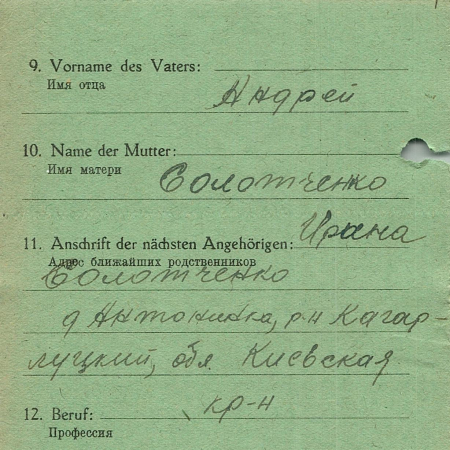 9. Vorname des Vaters:
Имя отца
Андрей
10. Name der Mutter:
Имя матери
Солотченко
11. Anschrift der nächsten Angehörigen: Ирана
Адрес ближайших родственников
Солотченко
д Антоновка, р-н Кагар-
луцкий, обл. Киевская
12. Beruf: кр-н
Профессия